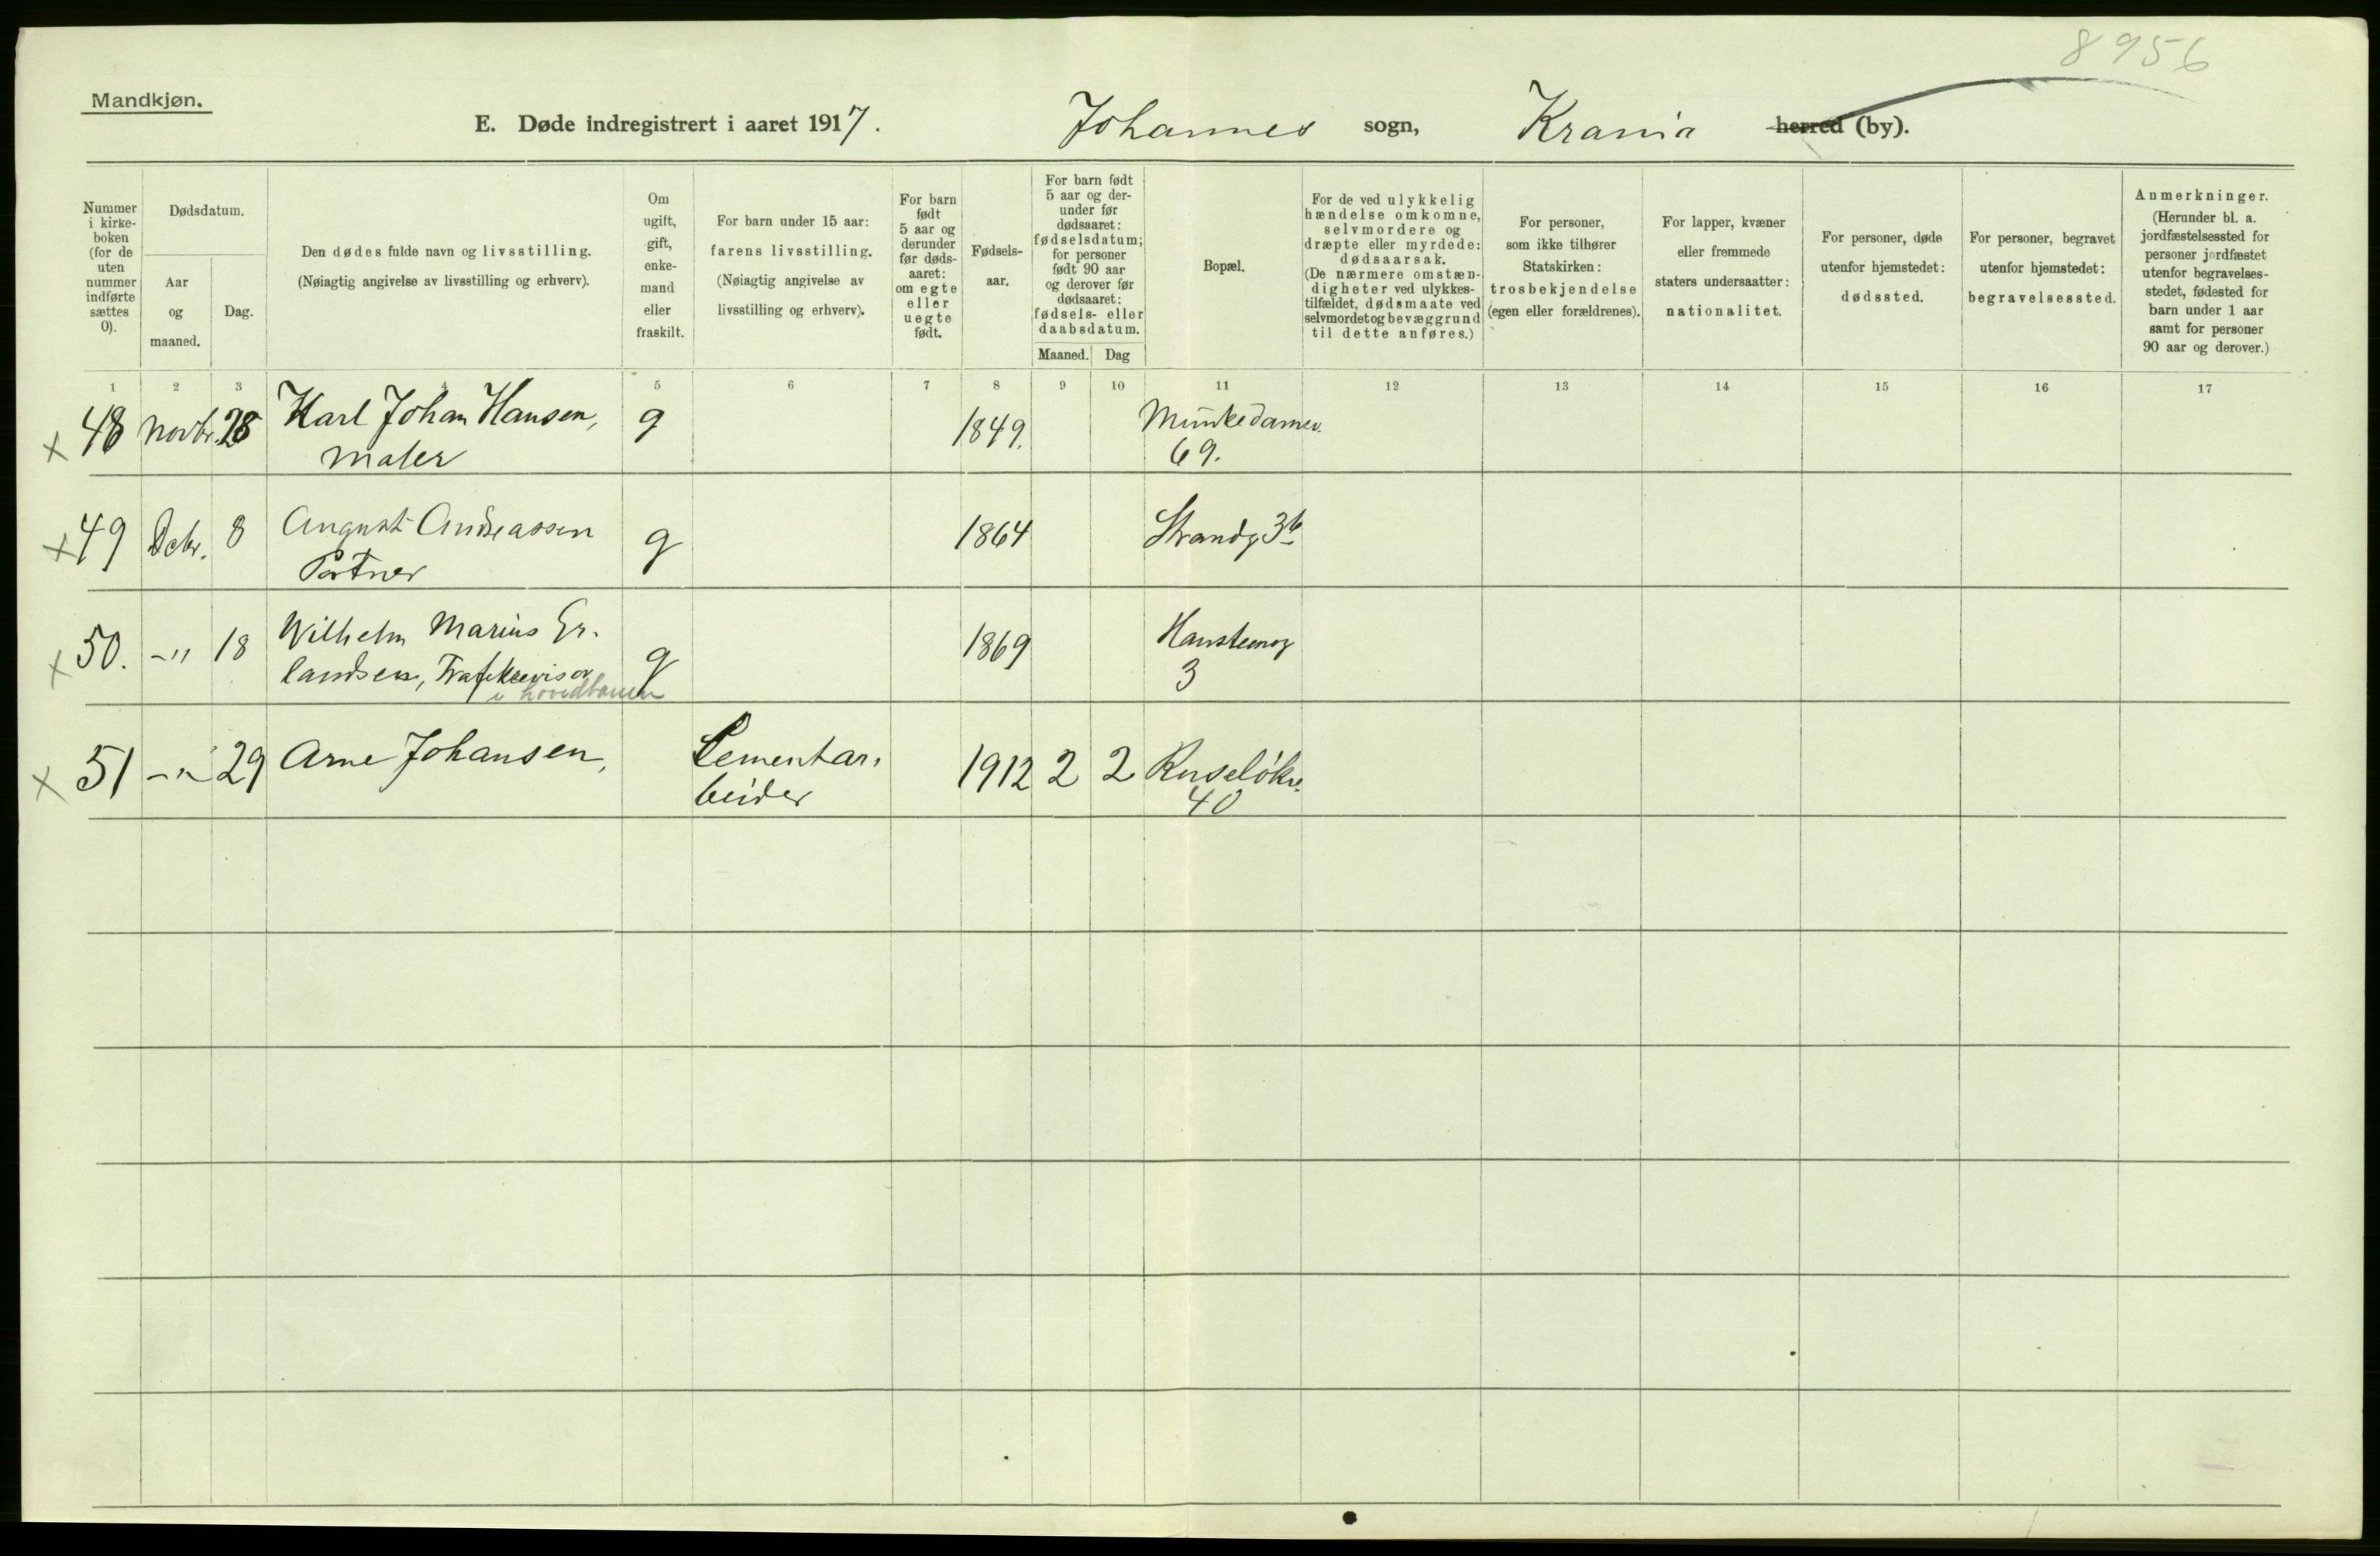 8956
Mandkjøn.
E. Døde indregistrert i aaret 1917. Johannes sogn, Krania herred (by).
Nummer
i kirke-
boken
(for de
uten
nummer
indførte
sættes
0).
Dødsdatum.
Aar
og
maaned.
Dag.
Den dødes fulde navn og livsstilling.
(Nøiagtig angivelse av livsstilling og erhverv).
Om
ugift,
gift,
enke-
mand
eller
fraskilt.
For barn under 15 aar:
farens livsstilling.
(Nøiagtig angivelse av
livsstilling og erhverv).
For barn
født
5 aar og
derunder
før døds-
aaret:
om egte
eller
uegte
født.
Fødsels-
aar.
For barn født
5 aar og der-
under før
dødsaaret:
fødselsdatum;
for personer
født 90 aar
og derover før
dødsaaret:
fødsels- eller
daabsdatum.
Maaned. Dag
Bopæl.
For de ved ulykkelig
hændelse omkomne,
selvmordere og
dræpte eller myrdede:
dødsaarsak.
(De nærmere omstæn-
digheter ved ulykkes-
tilfældet, dødsmaate ved
selvmordet og bevæggrund
til dette anføres.)
For personer,
som ikke tilhører
Statskirken:
trosbekjendelse
(egen eller forældrenes).
For lapper, kvæner
eller fremmede
staters undersaatter:
nationalitet.
For personer, døde
utenfor hjemstedet:
dødssted.
For personer, begravet
utenfor hjemstedet:
begravelsessted.
Anmerkninger.
(Herunder bl. a.
jordfæstelsessted for
personer jordfæstet
utenfor begravelses-
stedet, fødested for
barn under 1 aar
samt for personer
90 aar og derover.)
1 2 3 4 5 6 7 8 9 10 11 12 13 14 15 16 17
x 48 Novbr. 28 Karl Johan Hansen, g 1849. Munkedamsv.
Maler 69.
x 49 Dcbr. 8 August Andreassen g 1864 Strandg 36
Portner
x 50. -" 18 Wilhelm Marius Er- g 1869 Hansteensg
landsen, Trafikrevisor 3
v hovedbanen
x 51 -" 29 Arne Johansen, Cementar- 1912 2 2 Ruseløkv.
beider 40